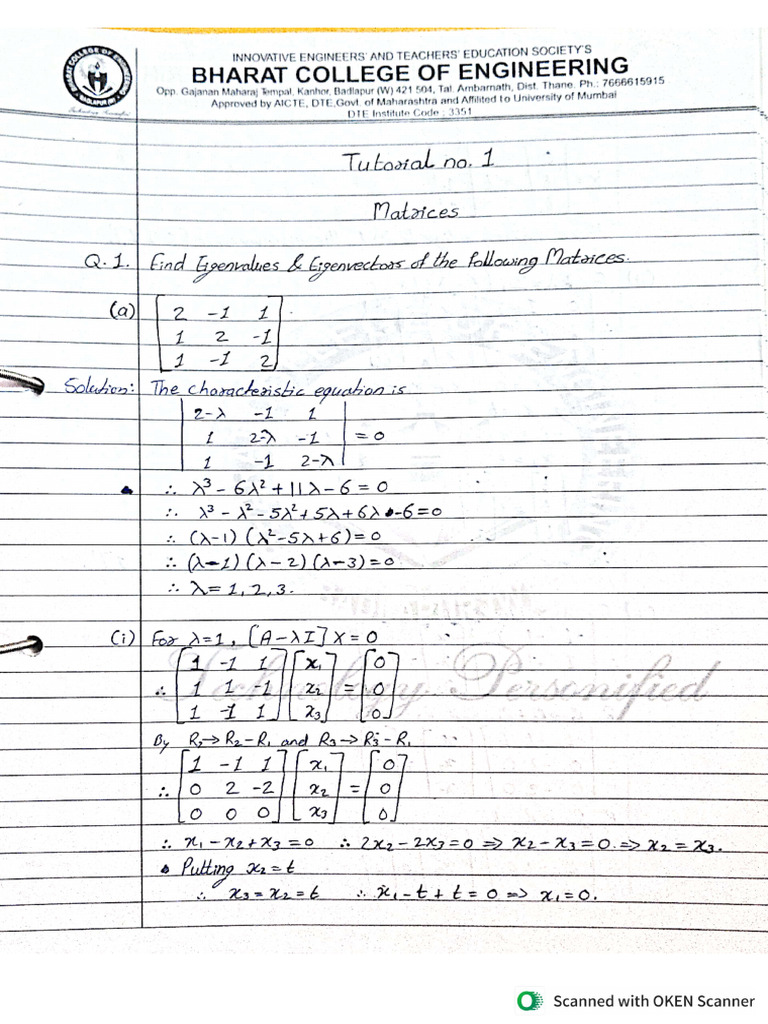 INNOVATIVE ENGINEERS' AND TEACHERS' EDUCATION SOCIETY'S
BHARAT COLLEGE OF ENGINEERING
Opp. Gajanan Maharaj Tempal, Kanhor, Badlapur (W) 421 504, Tal. Ambarnath, Dist. Thane. Ph.: 7666615915
Approved by AICTE, DTE,Govt. of Maharashtra and Affilited to University of Mumbai
DTE Institute Code : 3351
Tutorial no. 1
Matrices
Q.1. Find Eigenvalues & Eigenvectors of the following Matrices.
(a) [2 -1 1
1 2 -1
1 -1 2]
Solution: The characteristic equation is
|2-λ -1 1|
|1 2-λ -1| = 0
|1 -1 2-λ|
∴ λ³ - 6λ² + 11λ - 6 = 0
∴ λ³ - λ² - 5λ² + 5λ + 6λ - 6 = 0
∴ (λ-1) (λ² - 5λ + 6) = 0
∴ (λ-1) (λ-2) (λ-3) = 0
∴ λ = 1, 2, 3.
(i) For λ=1, [A-λI] X = 0
[1 -1 1] [x₁] [0]
∴ [1 1 -1] [x₂] = [0]
[1 -1 1] [x₃] [0]
Technology Personified
By R₂→R₂-R₁ and R₃→R₃-R₁
[1 -1 1] [x₁] [0]
∴ [0 2 -2] [x₂] = [0]
[0 0 0] [x₃] [0]
∴ x₁ - x₂ + x₃ = 0 ∴ 2x₂ - 2x₃ = 0 ⇒ x₂ - x₃ = 0. ⇒ x₂ = x₃.
Putting x₂ = t
∴ x₃ = x₂ = t ∴ x₁ - t + t = 0 ⇒ x₁ = 0.
Scanned with OKEN Scanner